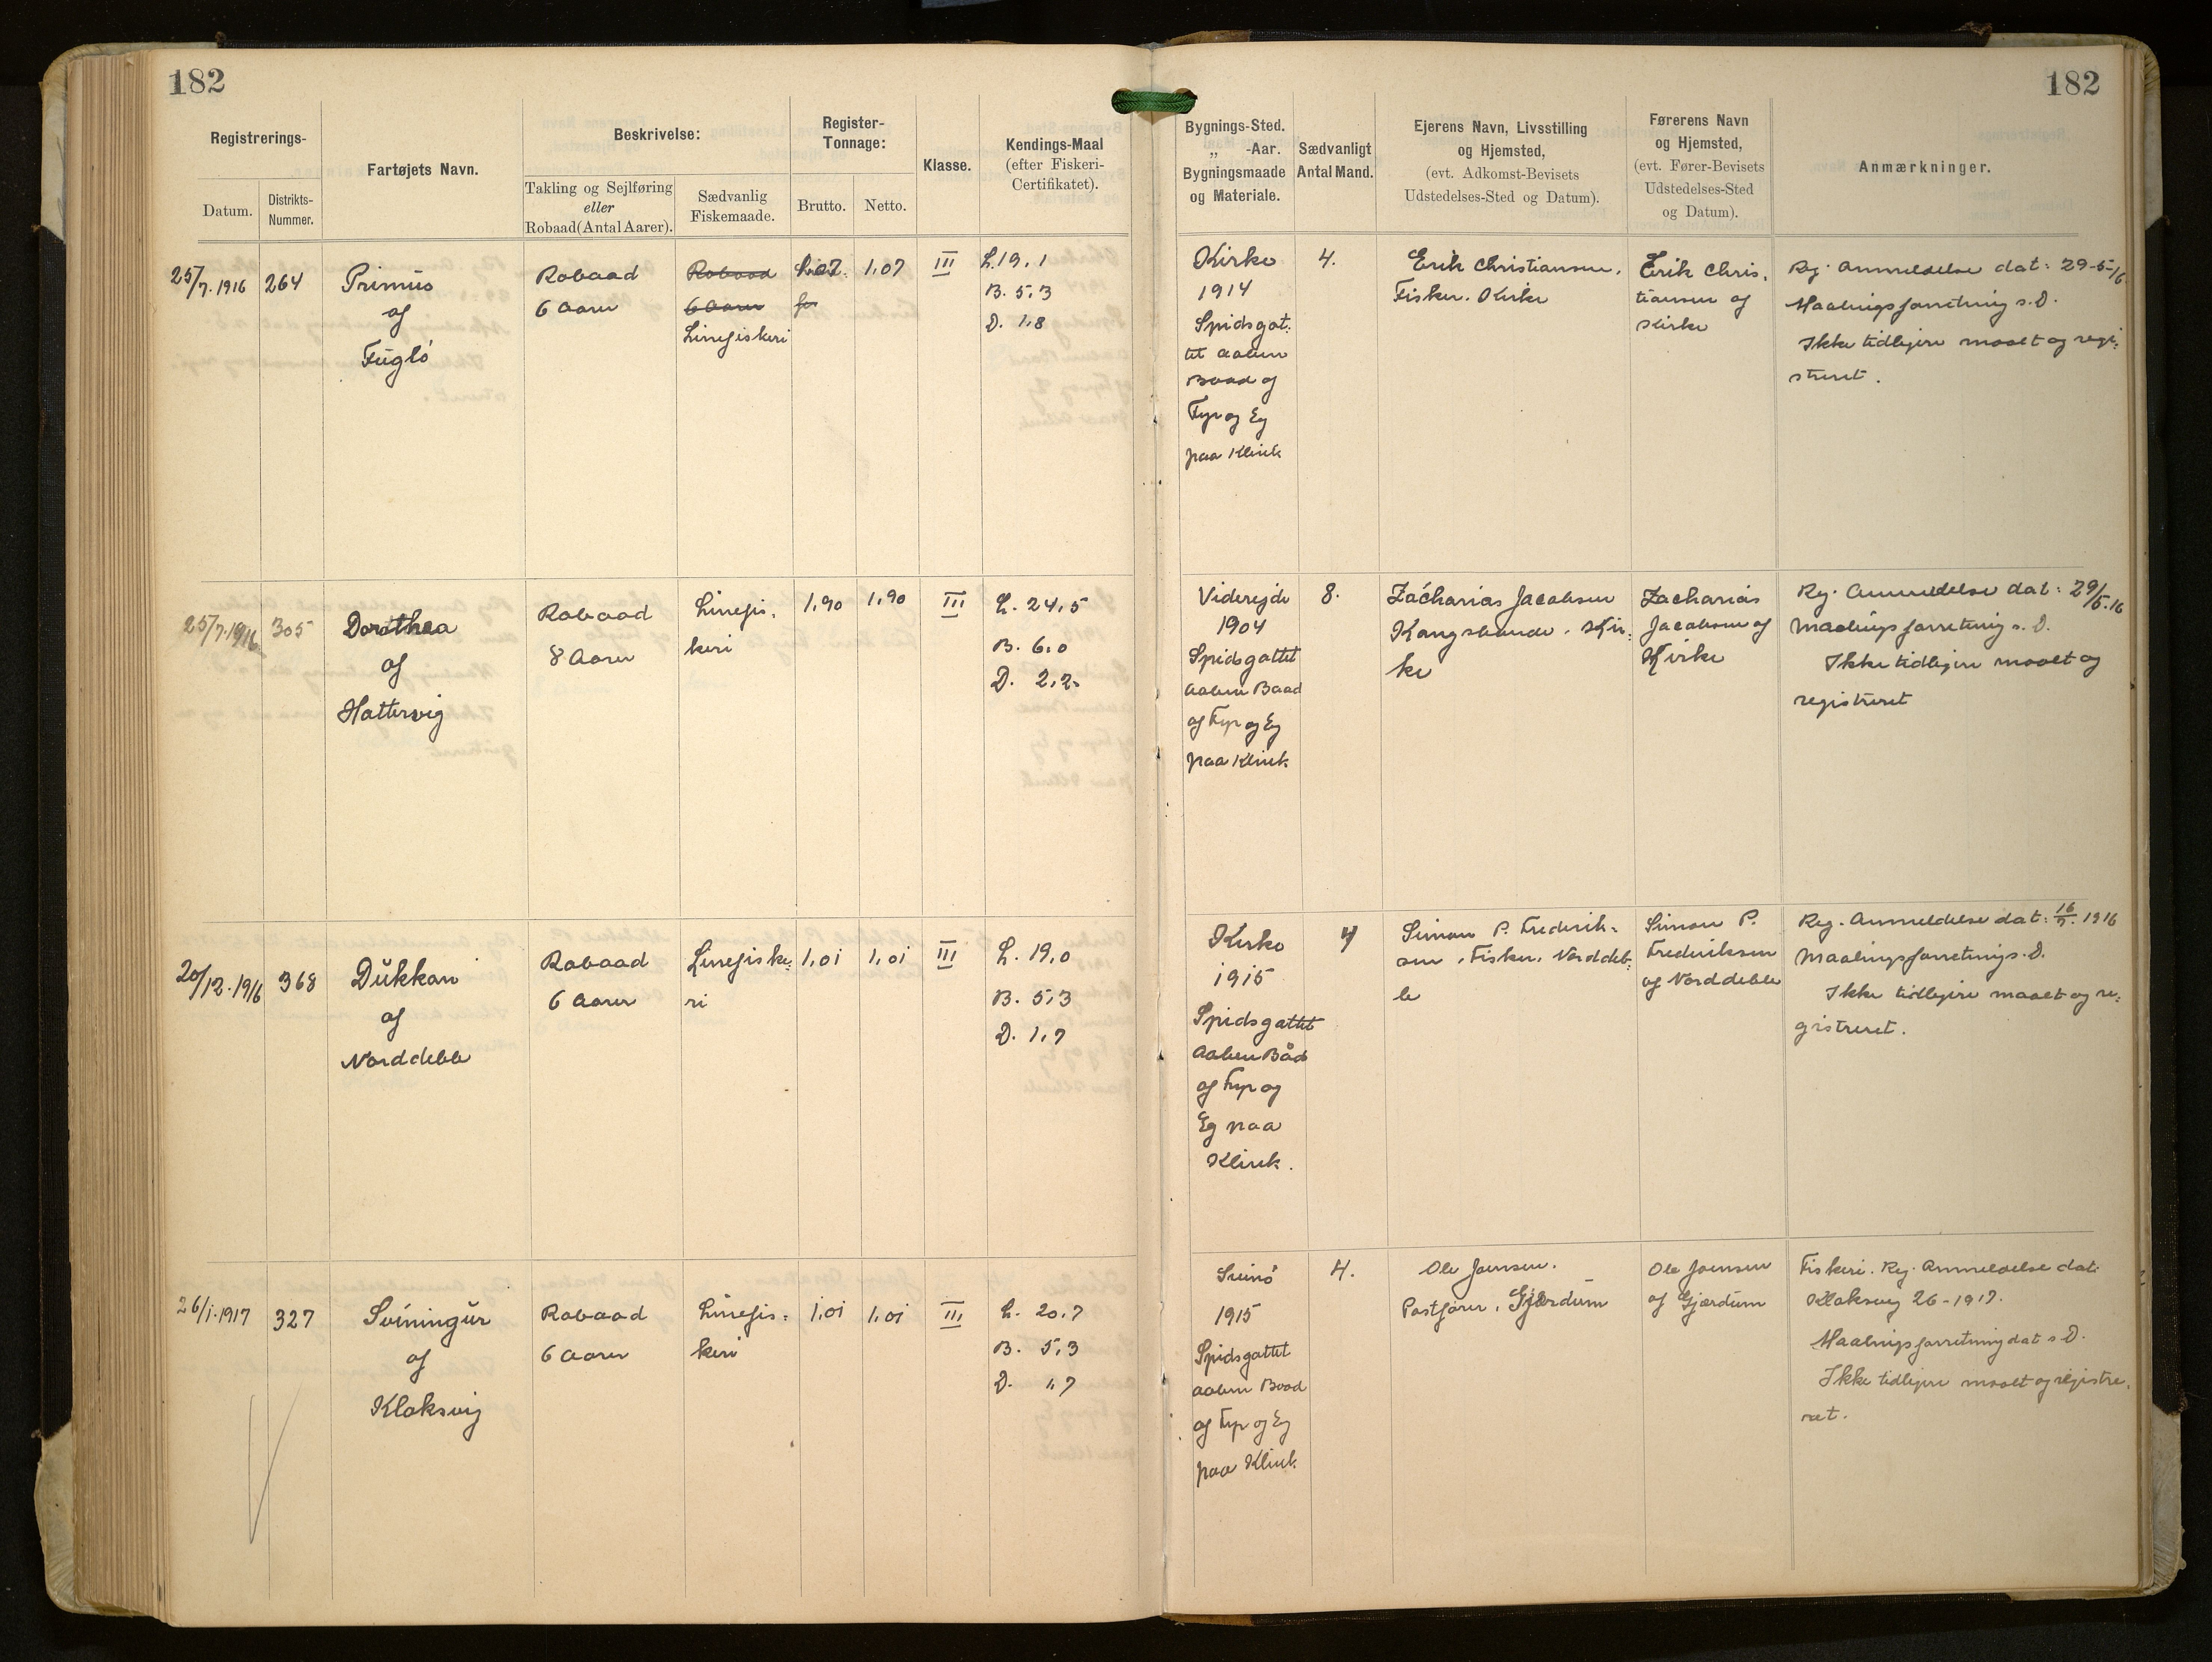 182
182
Registrerings-
Datum.
Distrikts-
Nummer.
Fartøjets Navn.
Beskrivelse:
Takling og Sejlføring
eller
Robaad (Antal Aarer).
Sædvanlig
Fiskemaade.
Register-
Tonnage:
Brutto.
Netto.
Klasse.
Kendings-Maal
(efter Fiskeri-
Certifikatet).
Bygnings-Sted.
„ -Aar.
Bygningsmaade
og Materiale.
Sædvanligt
Antal Mand.
Ejerens Navn, Livsstilling
og Hjemsted,
(evt. Adkomst-Bevisets
Udstedelses-Sted og Datum).
Førerens Navn
og Hjemsted,
(evt. Fører-Bevisets
Udstedelses-Sted
og Datum).
Anmærkninger.
25/7. 1916
264
Primus
af
Fuglö
Robaad
6 Aarer
Robaad
6 Aarer
Linefiskeri
1,07
III
L. 19,1
B. 5,3
D. 1,8
Kirke
1914
Spidsgat:
tet aaben
Baad af
Fyr og Eg
paa Klink
4.
Erik Christiansen,
Fisker. Kirke
Erik Chris.
tiansen af
Kirke
Reg. Anmeldelse dat: 29-5-/6
Maalingsforretning s. D.
Ikke tidligere maalt og regi:
streret.
25/7.1916
305
Dorothea
af
Hattervig
Robaad
8 Aarer
Linefis.
keri
1,90
1,90
III
L. 24,5
B. 6,0
D. 2,2
Viderejde
1904
Spidsgattet
aaben Baad
af Fyr og Eg
paa Klink
8.
Zacharias Jacobsen
Kongsbonde. Kir:
ke
Zacharias
Jacobsen af
Kirke
Reg. Anmeldelse dat: 29/5.16
Maalingsforretning s. D.
Ikke tidligere maalt og
registreret
20/12.1916
368
Dukkan
af
Norddeble
Robaad
6 Aarer
Linefiske:
ri
1,01
1,01
III
L. 19,0
B. 5,3
D. 1,7
Kirke
1915
Spidsgattet
Aaben Båd
af Fyr og
Eg paa
Klink.
4
Simon P. Frederik-
sen, Fisker, Norddeb:
le
Simon P.
Frederiksen
af Norddeble
Reg. Anmeldelse dat: 16/9. 1916
Maalingsforretning s. D.
Ikke tidligere maalt og re:
gistreret.
26/1.1917
327
Sviningur
af
Klaksvig
Robaad
6 Aarer
Linefis:
keri
1,01
1,01
III
L. 20,7
B. 5,3
D. 1,7
Svinö
1915
Spidsgattet
aaben Baad
af Fyr og Eg
paa Klink
4.
Ole Joensen.
Postfører, Gjærdum
Ole Joensen
af Gjærdum
Fiskeri. Reg. Anmeldelse dat.
Klaksvig 26-1917.
Maalingsforretning dat s. D.
Ikke tidligere maalt og registre,
ret.